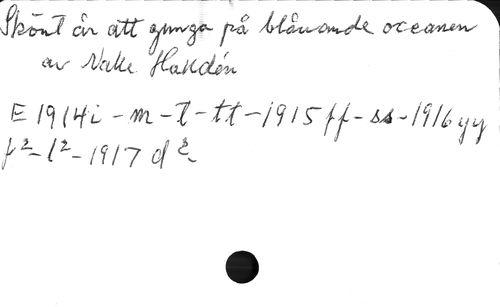 Skönt är att gunga på blånande oceanen
av Nalle Halldén
E 1914 i - m - t - tt - 1915 ff - ss - 1916 yy
f² - l² - 1917 d²